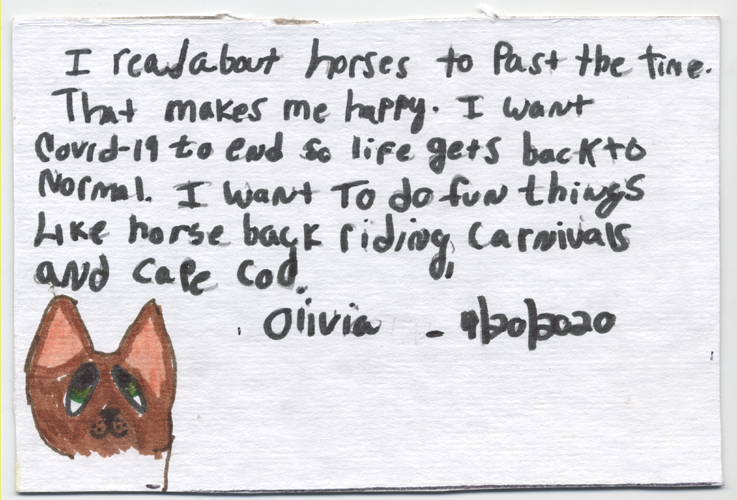 I read about horses to Past the time.
That makes me happy. I want
Covid-19 to end so life gets back to
Normal. I want To do fun things
Like horse back riding, Carnivals
and Cape Cod.
Olivia - 9/20/2020